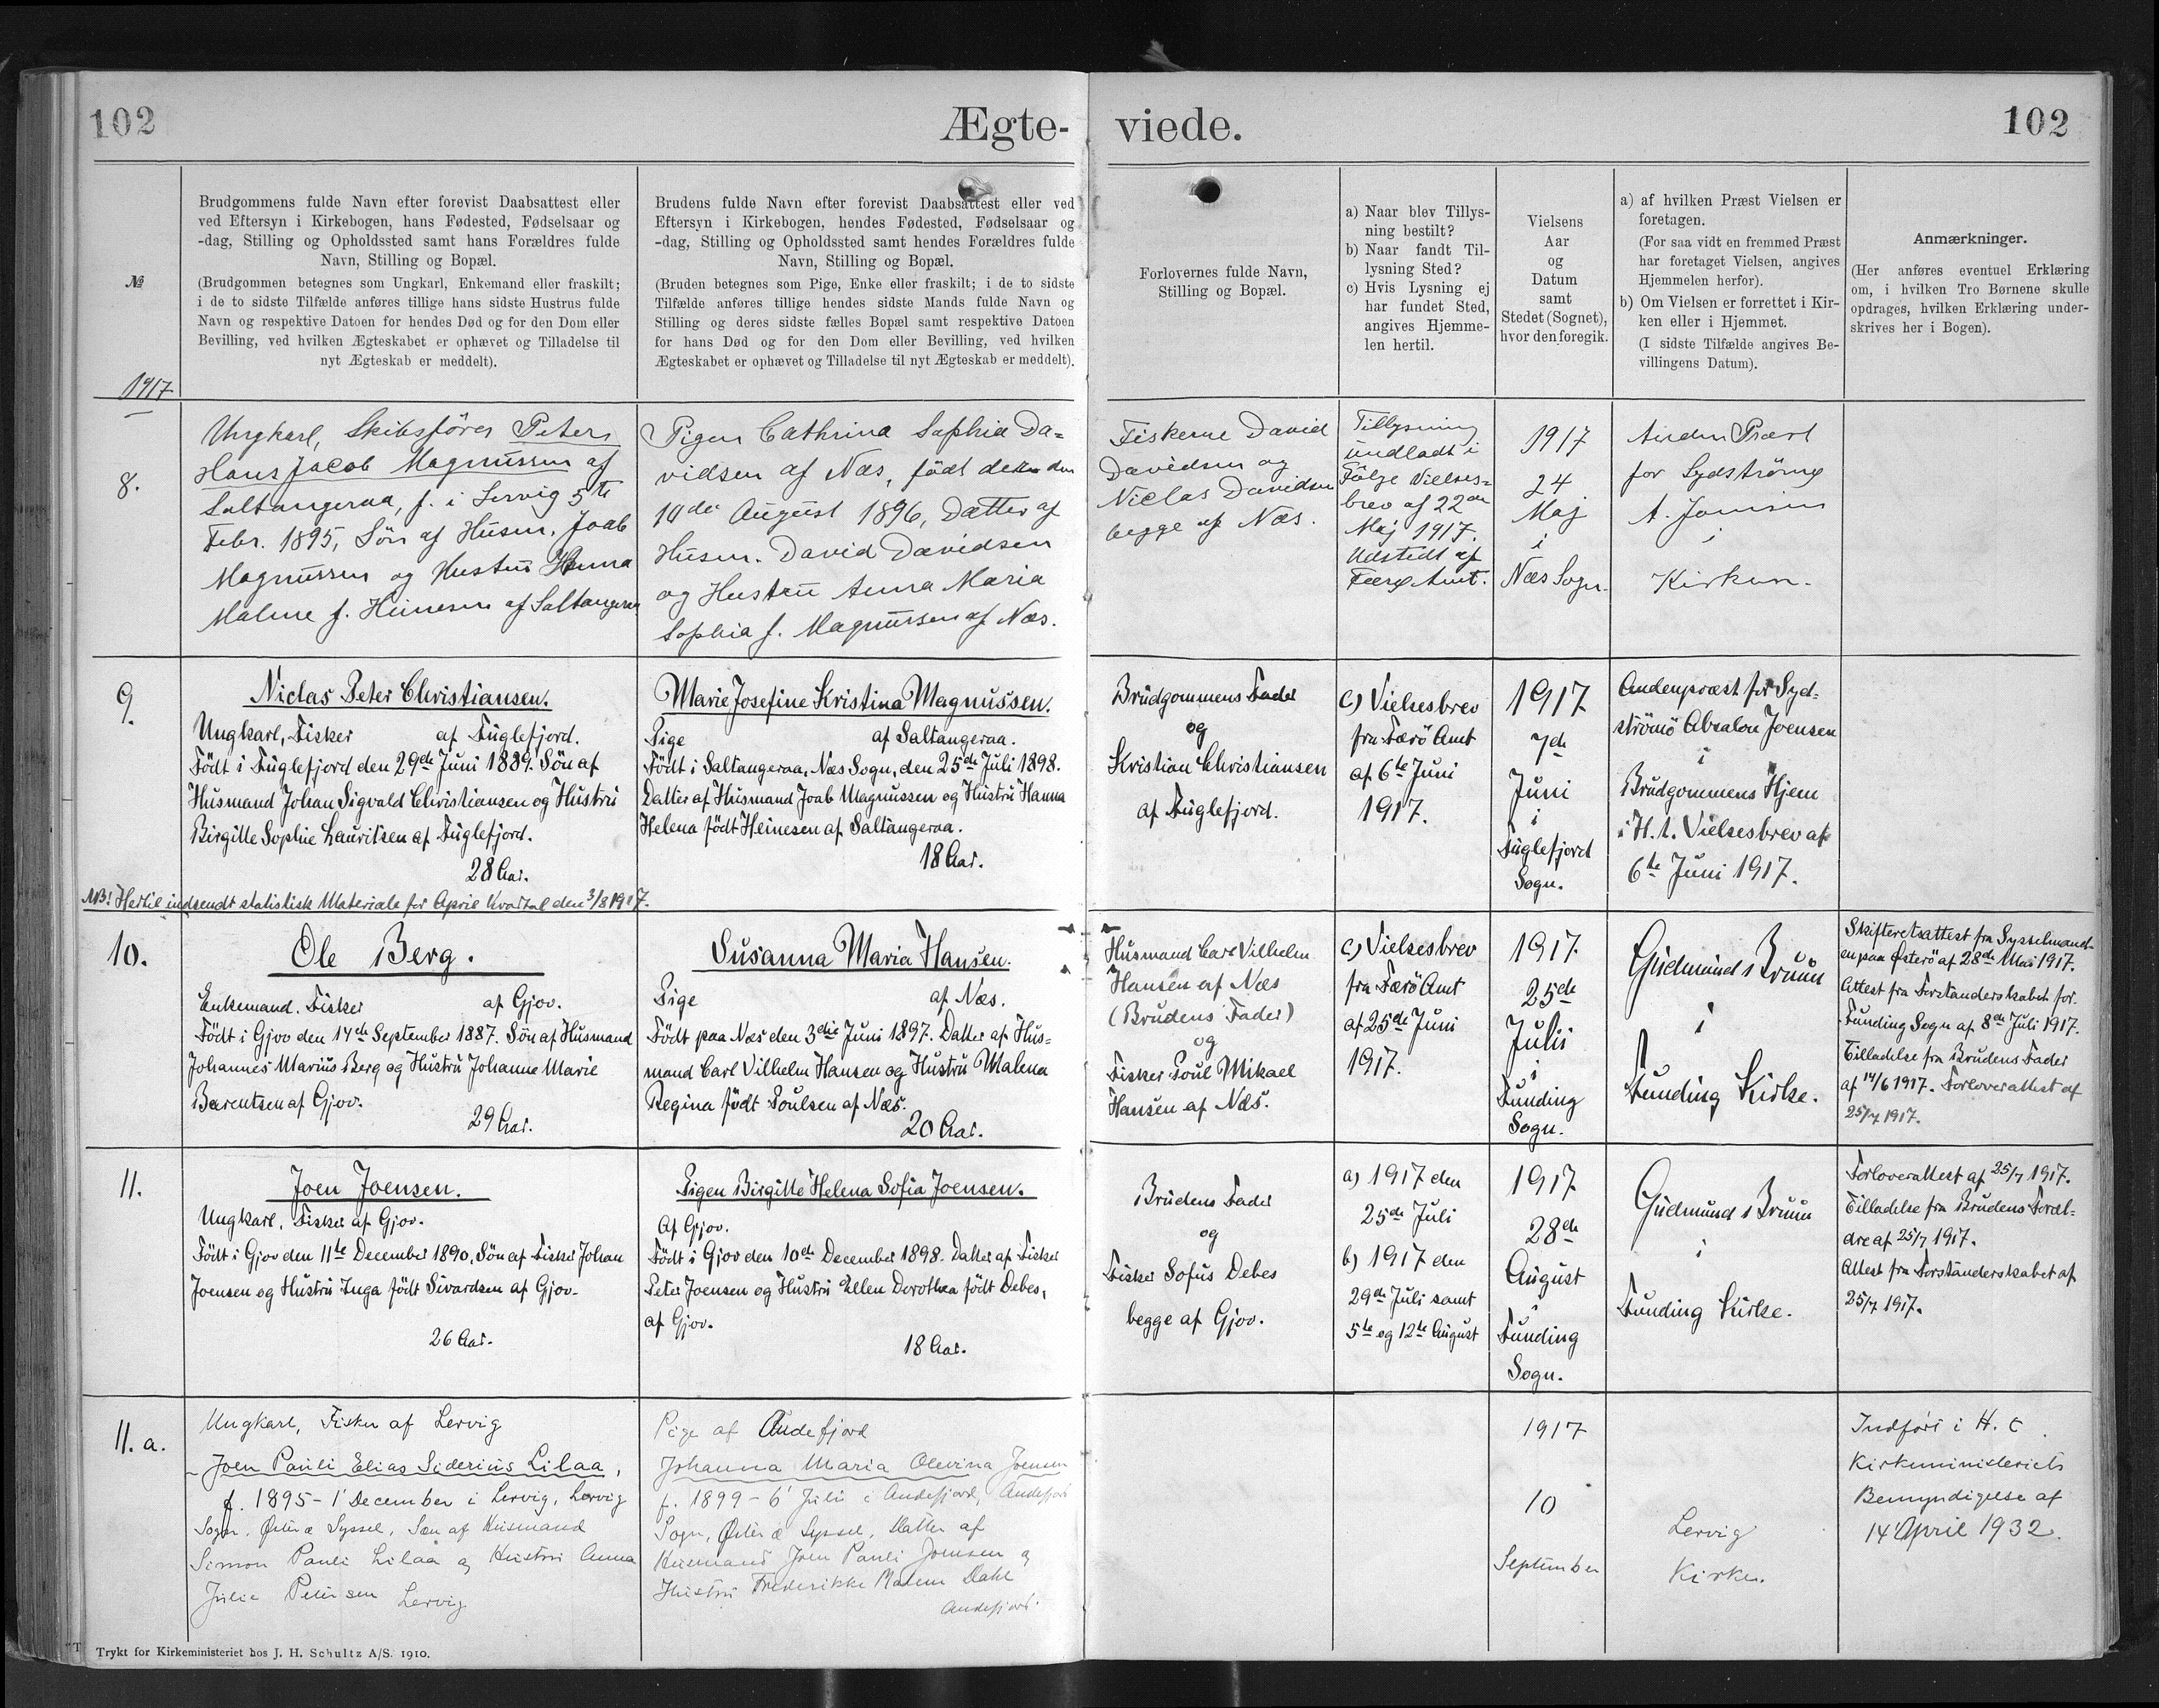 102
Ægte-
viede.
102
№
1917
Brudgommens fulde Navn efter forevist Daabsattest eller
ved Eftersyn i Kirkebogen, hans Fødested, Fødselsaar og
-dag, Stilling og Opholdssted samt hans Forældres fulde
Navn, Stilling og Bopæl.
(Brudgommen betegnes som Ungkarl, Enkemand eller fraskilt;
i de to sidste Tilfælde anføres tillige hans sidste Hustrus fulde
Navn og respektive Datoen for hendes Død og for den Dom eller
Bevilling, ved hvilken Ægteskabet er ophævet og Tilladelse til
nyt Ægteskab er meddelt).
Brudens fulde Navn efter forevist Daabsattest eller ved
Eftersyn i Kirkebogen, hendes Fødested, Fødselsaar og
-dag, Stilling og Opholdssted samt hendes Forældres fulde
Navn, Stilling og Bopæl.
(Bruden betegnes som Pige, Enke eller fraskilt; i de to sidste
Tilfælde anføres tillige hendes sidste Mands fulde Navn og
Stilling og deres sidste fælles Bopæl samt respektive Datoen
for hans Død og for den Dom eller Bevilling, ved hvilken
Ægteskabet er ophævet og Tilladelse til nyt Ægteskab er meddelt).
Forlovernes fulde Navn,
Stilling og Bopæl.
a) Naar blev Tillys-
ning bestilt?
b) Naar fandt Til-
lysning Sted?
c) Hvis Lysning ej
har fundet Sted,
angives Hjemme-
len hertil.
Vielsens
Aar
og
Datum
samt
Stedet (Sognet),
hvor den foregik.
a) af hvilken Præst Vielsen er
foretagen.
(For saa vidt en fremmed Præst
har foretaget Vielsen, angives
Hjemmelen herfor).
b) Om Vielsen er forrettet i Kir-
ken eller i Hjemmet.
(I sidste Tilfælde angives Be-
villingens Datum).
Anmærkninger.
(Her anføres eventuel Erklæring
om, i hvilken Tro Børnene skulle
opdrages, hvilken Erklæring under-
skrives her i Bogen).
8.
Ungkarl, Skibsfører Peter
Hans Jacob Magnussen af
Saltangeraa, f. i Lervig 5te
Febr. 1895, Søn af Husm. Joab
Magnussen og Hustru Hanna
Malene f. Heinesen af Saltangeraa
Pigen Cathrina Sophia Da=
vidsen af Næs, født den
10de August 1896, Datter af
Husm. David Davidsen
og Hustru Anna Maria
Sophia f. Magnussen af Næs.
Fiskerne David
Davidsen og
Niclas Davidsen
begge af Næs.
Tillysning
undladt i
Følge Vielses=
brev af 22de
Maj 1917.
Udstedt af
Færø Amt.
1917
24
Maj
i
Næs Sogn.
Anden Præst
for Sydstrømø
A. Joensen
i
Kirken.
9.
Niclas Peter Christiansen.
Ungkarl, Fisker af Fuglefjord.
Födt i Fuglefjord den 29de Juni 1889. Sön af
Husmand Johan Sigvald Christiansen og Hustru
Birgitte Sophie Lauritsen af Fuglefjord.
28 Aar.
NB! Hertil indsendt statistisk Materiale for April Kvartal den 3/8 1917.
Marie Josefine Kristina Magnussen.
Pige af Saltangeraa.
Födt i Saltangeraa, Næs Sogn, den 25de Juli 1898.
Datter af Husmand Joab Magnussen og Hustru Hanna
Helena født Heinesen af Saltangeraa.
18 Aar.
Brudgommens Fader
og
Kristian Christiansen
af Fuglefjord.
c) Vielsesbrev
fra Færö Amt
af 6te Juni
1917.
1917
7de
Juni
i
Fuglefjord
Sogn.
Andenpræst for Syd=
strömö Absalon Joensen
i
Brudgommens Hjem
i H. t. Vielsesbrev af
6te Juni 1917.
10.
Ole Berg.
Enkemand. Fisker af Gjov.
Födt i Gjov den 14de September 1887. Sön af Husmand
Johannes Marius Berg og Hustru Johanne Marie
Barentsen af Gjov.
29 Aar.
Susanna Maria Hansen.
Pige af Næs.
Födt paa Næs den 3die Juni 1897. Datter af Hus=
mand Carl Vilhelm Hansen og Hustru Malena
Regina födt Poulsen af Næs.
20 Aar.
Husmand Carl Vilhelm
Hansen af Næs
(Brudens Fader)
og
Fisker Poul Mikael
Hansen af Næs.
c) Vielsesbrev
fra Færö Amt
af 25de Juni
1917.
1917
25de
Juli
i
Funding
Sogn.
Gudmund Bruun
i
Funding Kirke.
Skifteretsattest fra Sysselmand-
en paa Østerö af 28de Mai 1917.
Attest fra Forstanderskabet for
Funding Sogn af 8de Juli 1917.
Tilladelse fra Brudens Fader
af 14/6 1917. Forloverattest af
25/7 1917.
11.
Joen Joensen.
Ungkarl. Fisker af Gjov.
Födt i Gjov den 11te December 1890. Sön af Fisker Johan
Joensen og Hustru Inga födt Sivardsen af Gjov.
26 Aar.
Pigen Birgitte Helena Sofia Joensen.
Af Gjov.
Födt i Gjov den 10de December 1898. Datter af Fisker
Peter Joensen og Hustru Ellen Dorothea födt Debes,
af Gjov.
18 Aar.
Brudens Fader
og
Fisker Sofus Debes
begge af Gjov.
a) 1917 den
25de Juli
b) 1917 den
29de Juli samt
5te og 12te August
1917
28de
August
i
Funding
Sogn.
Gudmund Bruun
i
Funding Kirke.
Forloverattest af 25/7 1917.
Tilladelse fra Brudens Foræl-
dre af 25/7 1917.
Attest fra Forstanderskabet af
25/7 1917.
11. a.
Ungkarl, Fisker af Lervig
Joen Pauli Elias Siderius Lilaa,
f. 1895 - 1' December i Lervig, Lervig
Sogn, Østerø Syssel, Søn af Husmand
Simon Pauli Lilaa og Hustru Anna
Julie Petersen Lervig
Pige af Andefjord
Johanna Maria Olevina Joensen
f. 1899 - 6' Juli i Andefjord, Andefjord
Sogn, Østerø Syssel, Datter af
Husmand Joen Pauli Joensen og
Hustru Frederikke Malene Dahl
Andefjord.
1917
10
September
Lervig
Kirke.
Indført i H. t.
Kirkeministeriets
Bemyndigelse af
14' April 1932.
Trykt for Kirkeministeriet hos J. H. Schultz A/S. 1910.